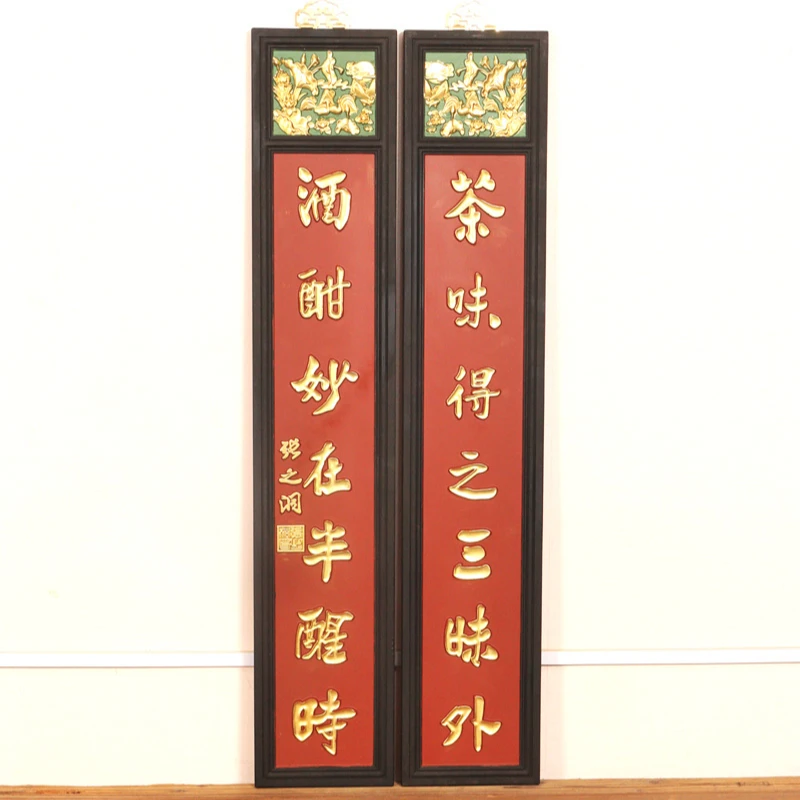 茶味得之三昧外
酒酣妙在半醒時
張之洞